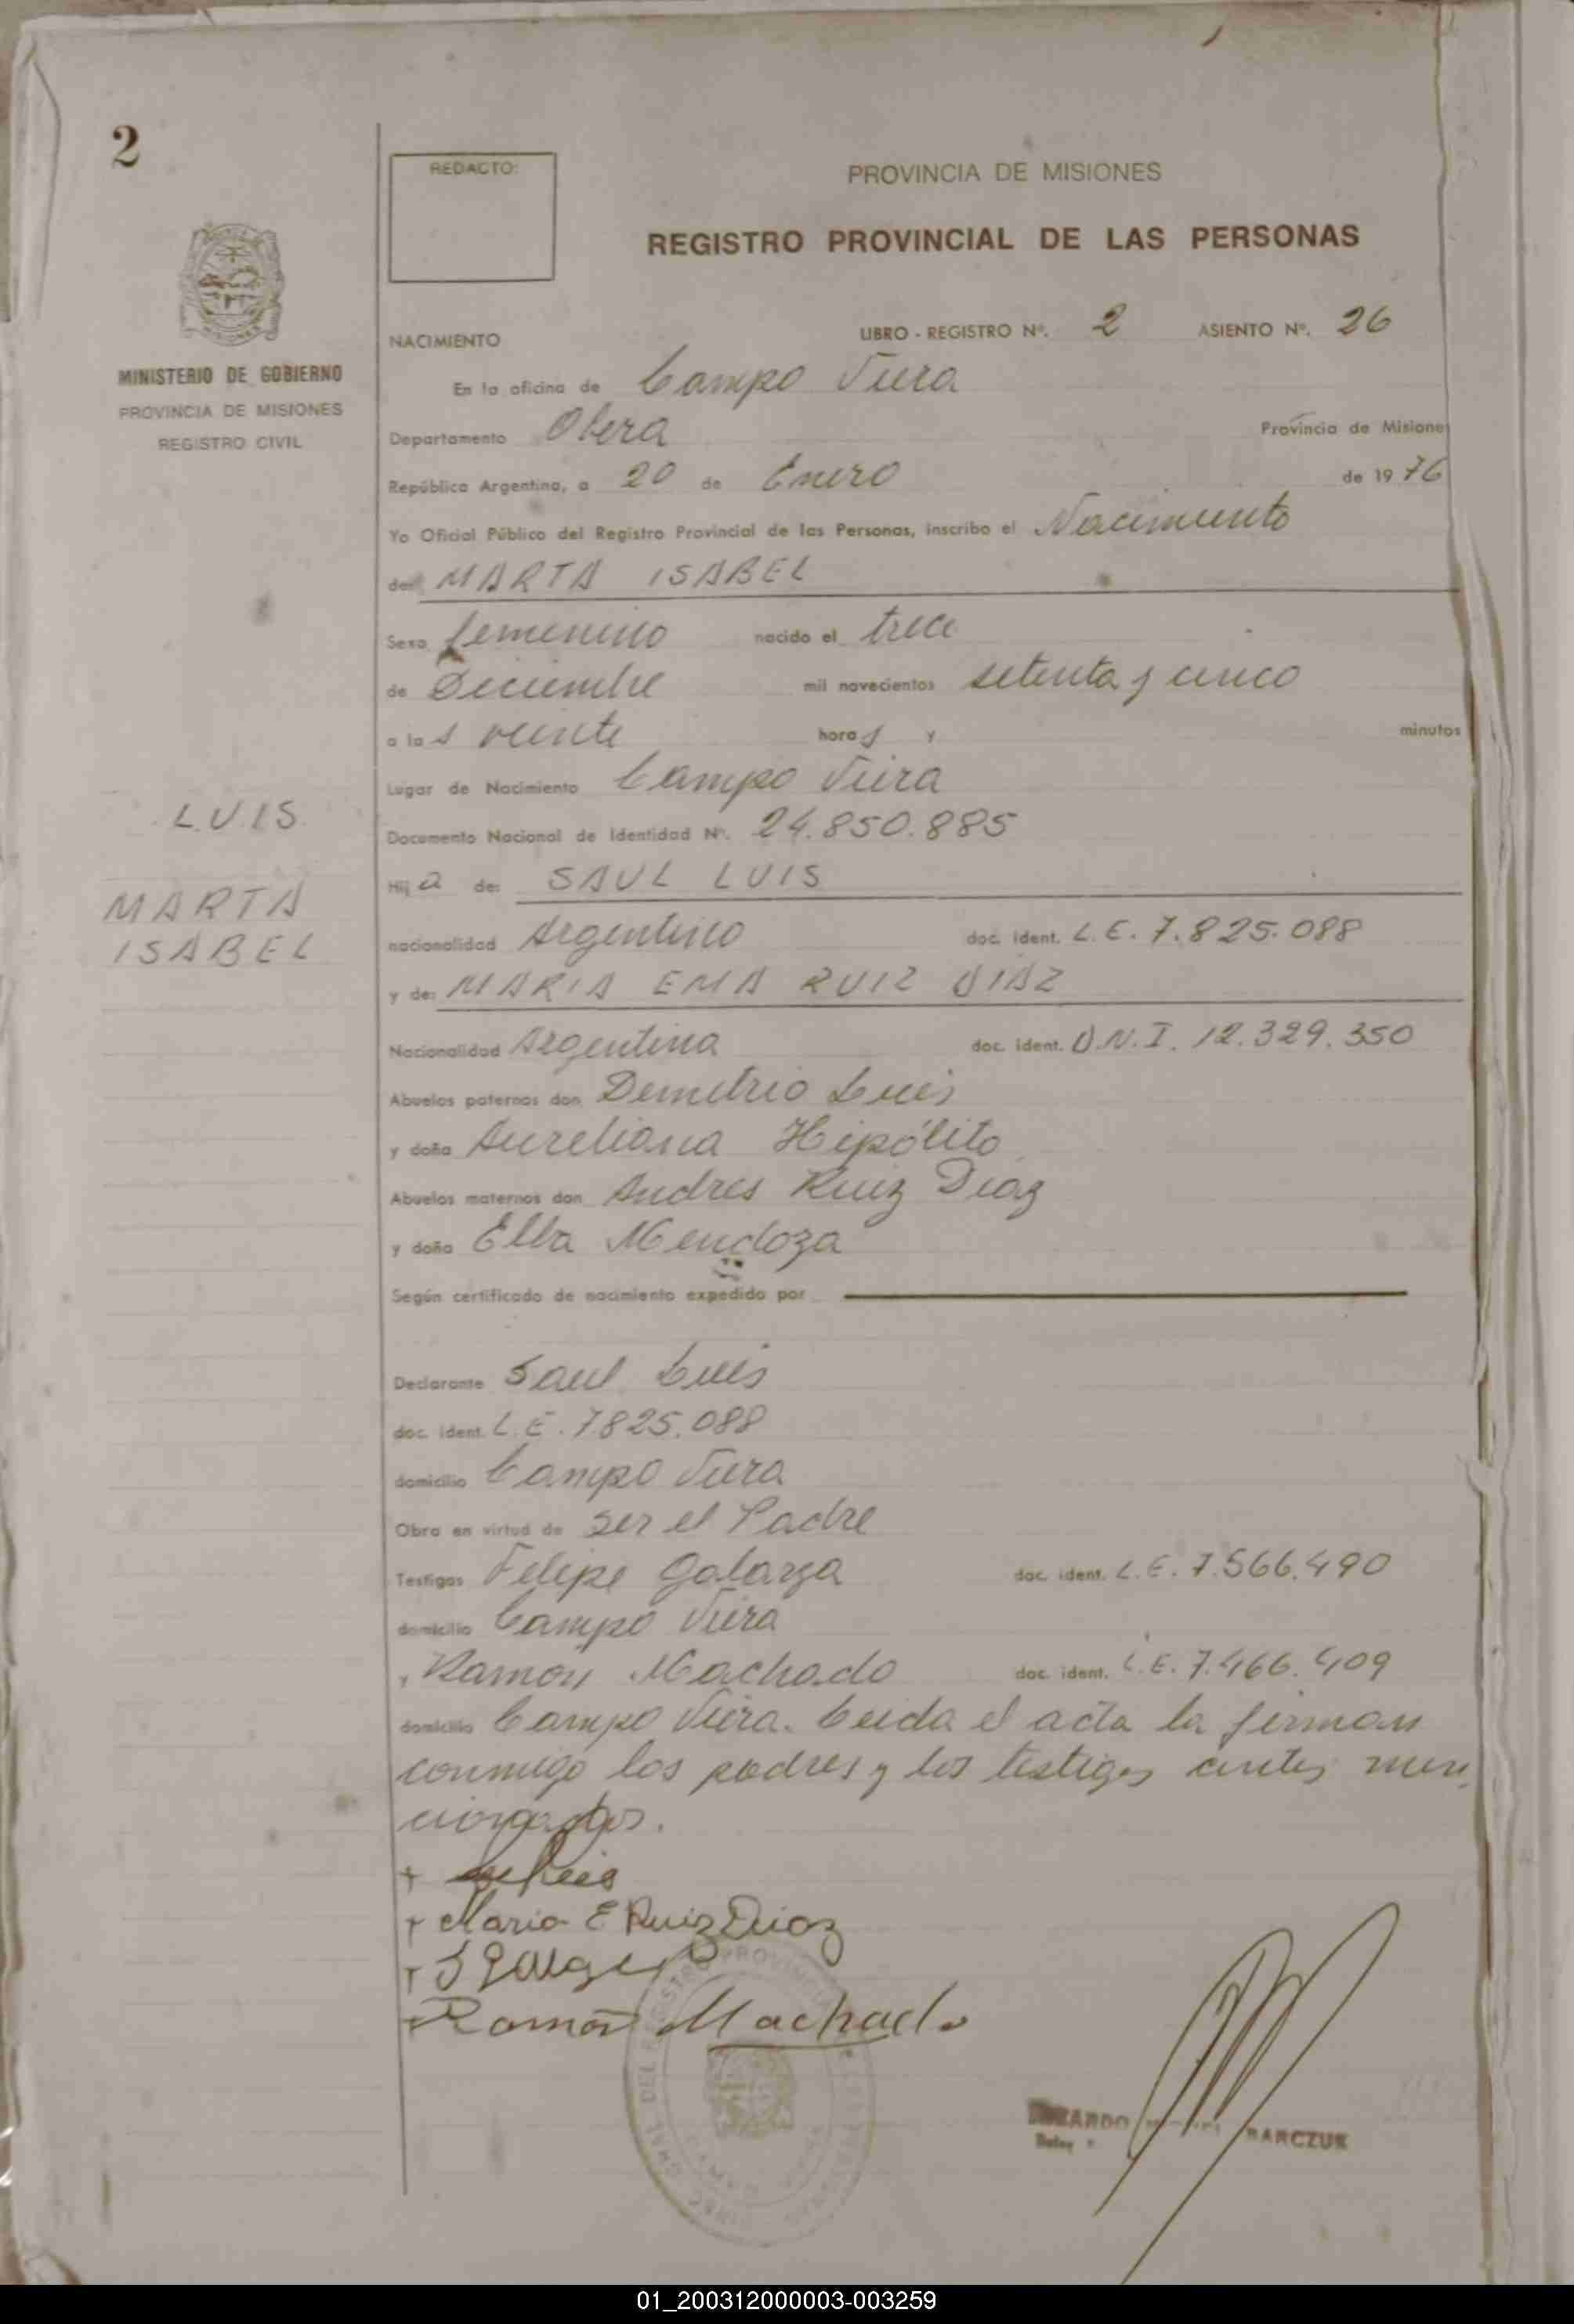 2
REDACTO:
PROVINCIA DE MISIONES
REGISTRO PROVINCIAL DE LAS PERSONAS
MINISTERIO DE GOBIERNO
PROVINCIA DE MISIONES
REGISTRO CIVIL
NACIMIENTO
LIBRO - REGISTRO Nº. 2 ASIENTO Nº. 26
En la oficina de Campo Viera
Departamento Obera Provincia de Misiones
República Argentina, a 20 de Enero de 1976
Yo Oficial Público del Registro Provincial de las Personas, inscribo el Nacimiento
de: MARTA ISABEL
Sexo femenino nacido el trece
de Diciembre mil novecientos setenta y cinco
a las veinte horas y minutos
Lugar de Nacimiento Campo Viera
LUIS
Documento Nacional de Identidad Nº. 24.850.885
Hija de: SAUL LUIS
MARTA
ISABEL
nacionalidad Argentino doc. ident. L.E. 7.825.088
y de: MARIA EMA RUIZ DIAZ
Nacionalidad Argentina doc. ident. D.N.I. 12.329.350
Abuelos paternos don Demetrio Luis
y doña Aureliana Hipólito
Abuelos maternos don Andres Ruiz Diaz
y doña Elba Mendoza
Según certificado de nacimiento expedido por
Declarante Saul Luis
doc. ident. L.E. 7.825.088
domicilio Campo Viera
Obra en virtud de ser el Padre
Testigos Felipe Galarza doc. ident. L.E. 7.566.490
domicilio Campo Viera
y Ramon Machado doc. ident. L.E. 7.466.409
domicilio Campo Viera. Leida el acta la firman
conmigo los padres y los testigos antes men
cionados.
+ Luis
+ Maria E Ruiz Diaz
+
+ Ramon Machado
BARCZUK
01_200312000003-003259